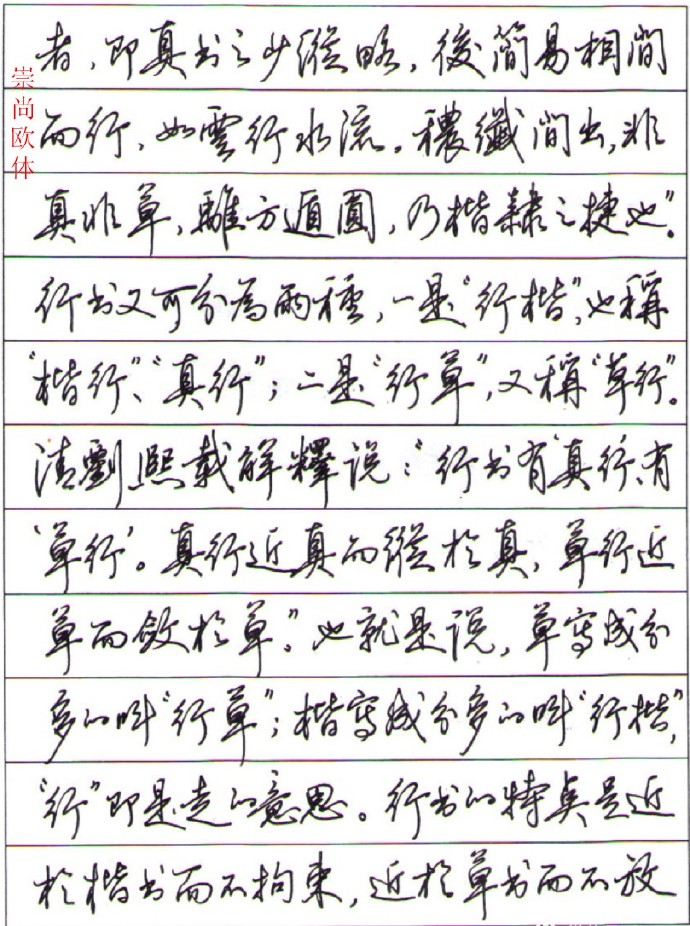 者，即真书之少縱略，後簡易相間
而行，如雲行水流，穠纖間出，非
真非草，離方遁圓，乃楷隸之捷也”。
行书又可分為兩種，一是“行楷”，也稱
“楷行”、“真行”；二是“行草”，又稱“草行”。
清劉熙載解釋说：“行书有‘真行’，有
‘草行’。真行近真而縱於真，草行近
草而斂於草。”也就是说，草寫成分
多的叫“行草”；楷寫成分多的叫“行楷”，
“行”即是走的意思。行书的特點是近
於楷书而不拘束，近於草书而不放
崇尚欧体